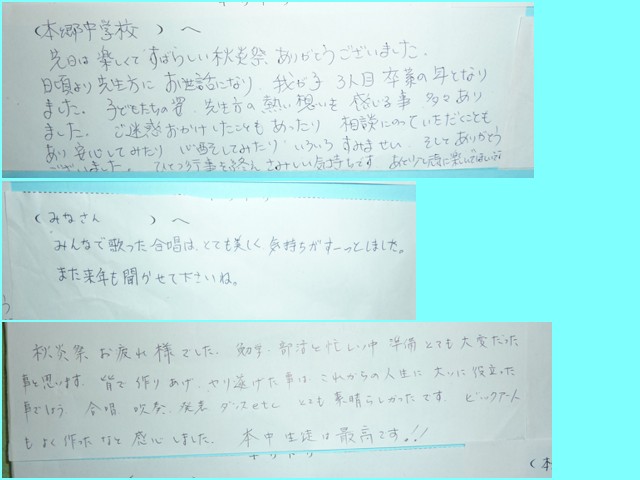 (本郷中学校)へ
先日は楽しくてすばらしい秋炎祭、ありがとうございました。
日頃より先生方にお世話になり、我が子3人目卒業の年となり
ました。子どもたちの姿、先生方の熱い想いを感じる事、多々あり
ました。ご迷惑おかけしたこともあったり 相談にのっていただくことも
あり 安心してみたり 心配してみたり いろいろすみません。そしてありがとう
ございました。ひとつ行事を終え さみしい気持ちです。
(みなさん)へ
みんなで歌った合唱は、とても美しく、気持ちがすーっとしました。
また来年も聞かせて下さいね。
秋炎祭お疲れ様でした。勉学、部活と忙しい中 準備とても大変だった
事と思います。皆で作りあげ、やり遂げた事は、これからの人生に大いに役立った
事でしょう。合唱 吹奏 発表 ダンスetc とても素晴らしかったです。ビックアート
もよく作ったなと感心しました。本中生徒は最高です!!
キリトリ
(本